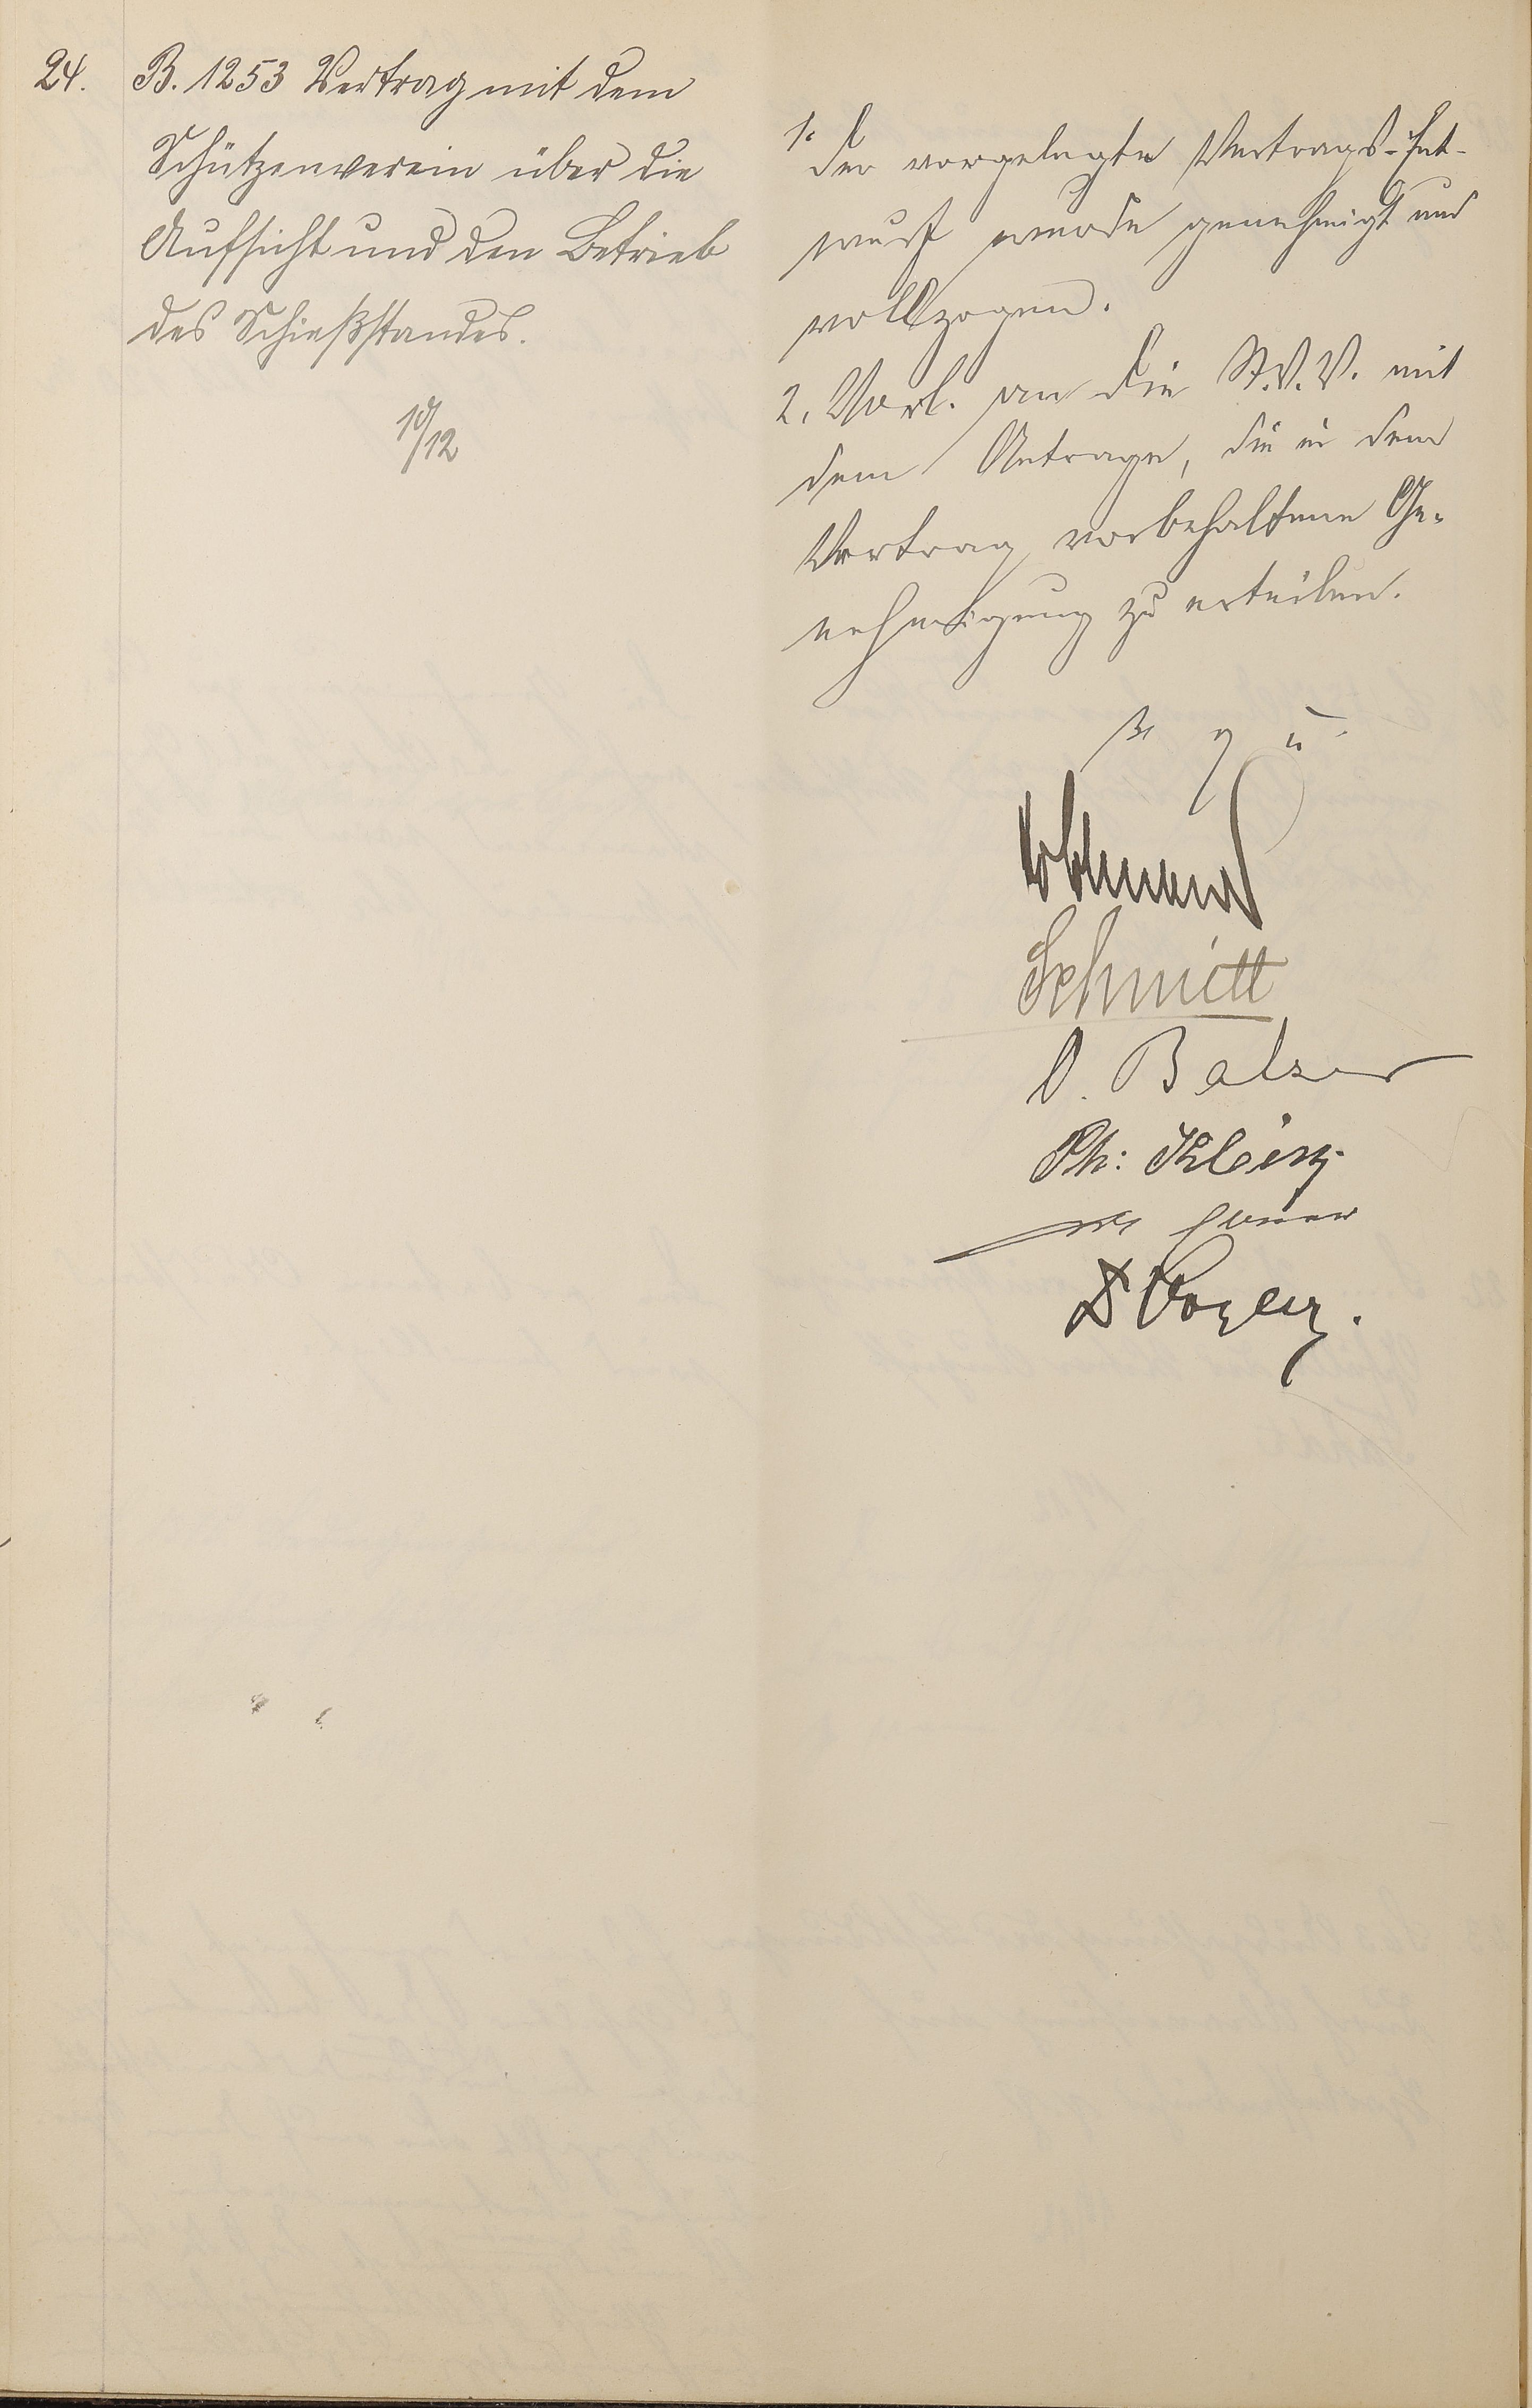 24. B. 1253 Vertrag mit dem
Schützenverein über die
Aufsicht und den Betrieb
des Schießstandes.
10/12
1. Der vorgelegte Vertrags-Ent-
wurf wurde genehmigt und
vollzogen.
2. Vorl. an die St.V.V. mit
dem Antrage, die in dem
Vertrag vorbehaltene Ge-
nehmigung zu erteilen.
v g u.
Schmitt
O. Balzer
Ph: Klein